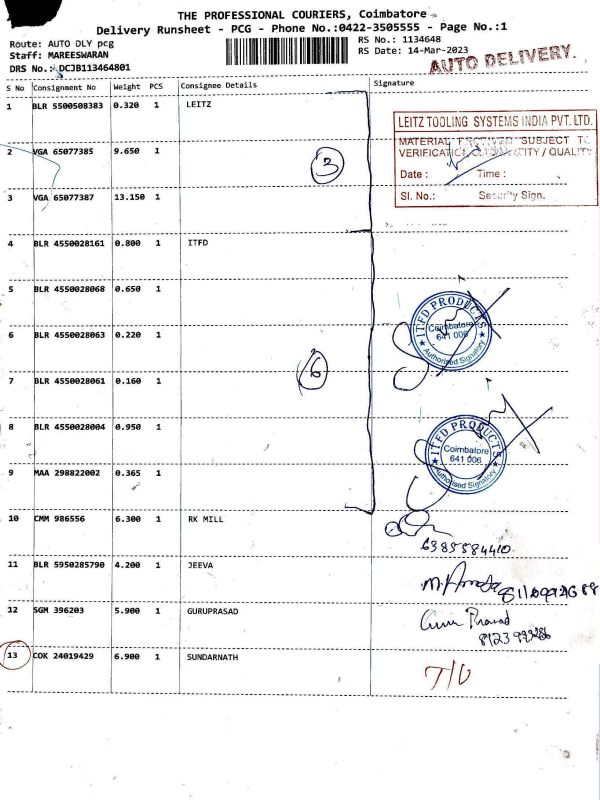 THE PROFESSIONAL COURIERS, Coimbatore
Delivery Runsheet - PCG - Phone No.:0422-3505555 - Page No.:1
Route: AUTO DLY pcg
RS No.: 1134648
Staff: MAREESWARAN
RS Date: 14-Mar-2023
DRS No.: DCJB113464801
AUTO DELIVERY.
S No Consignment No Weight PCS Consignee Details Signature
1 BLR 5500508383 0.320 1 LEITZ
LEITZ TOOLING SYSTEMS INDIA PVT. LTD.
MATERIAL RECEIVED SUBJECT TO
VERIFICATION QUANTITY / QUALITY
Date : Time :
Sl. No.: Security Sign.
2 VGA 65077385 9.650 1
3
3 VGA 65077387 13.150 1
4 BLR 4550028161 0.800 1 ITFD
5 BLR 4550028068 0.650 1
ITFD PRODUCTS
Coimbatore
641 006
Authorised Signatory
6 BLR 4550028063 0.220 1
6
7 BLR 4550028061 0.160 1
8 BLR 4550028004 0.950 1
ITFD PRODUCTS
Coimbatore
641 006
Authorised Signatory
9 MAA 298822002 0.365 1
10 CMM 986556 6.300 1 RK MILL
6385584410
11 BLR 5950285790 4.200 1 JEEVA
12 SGM 396203 5.900 1 GURUPRASAD
Guru Prasad
13 COK 24019429 6.900 1 SUNDARNATH